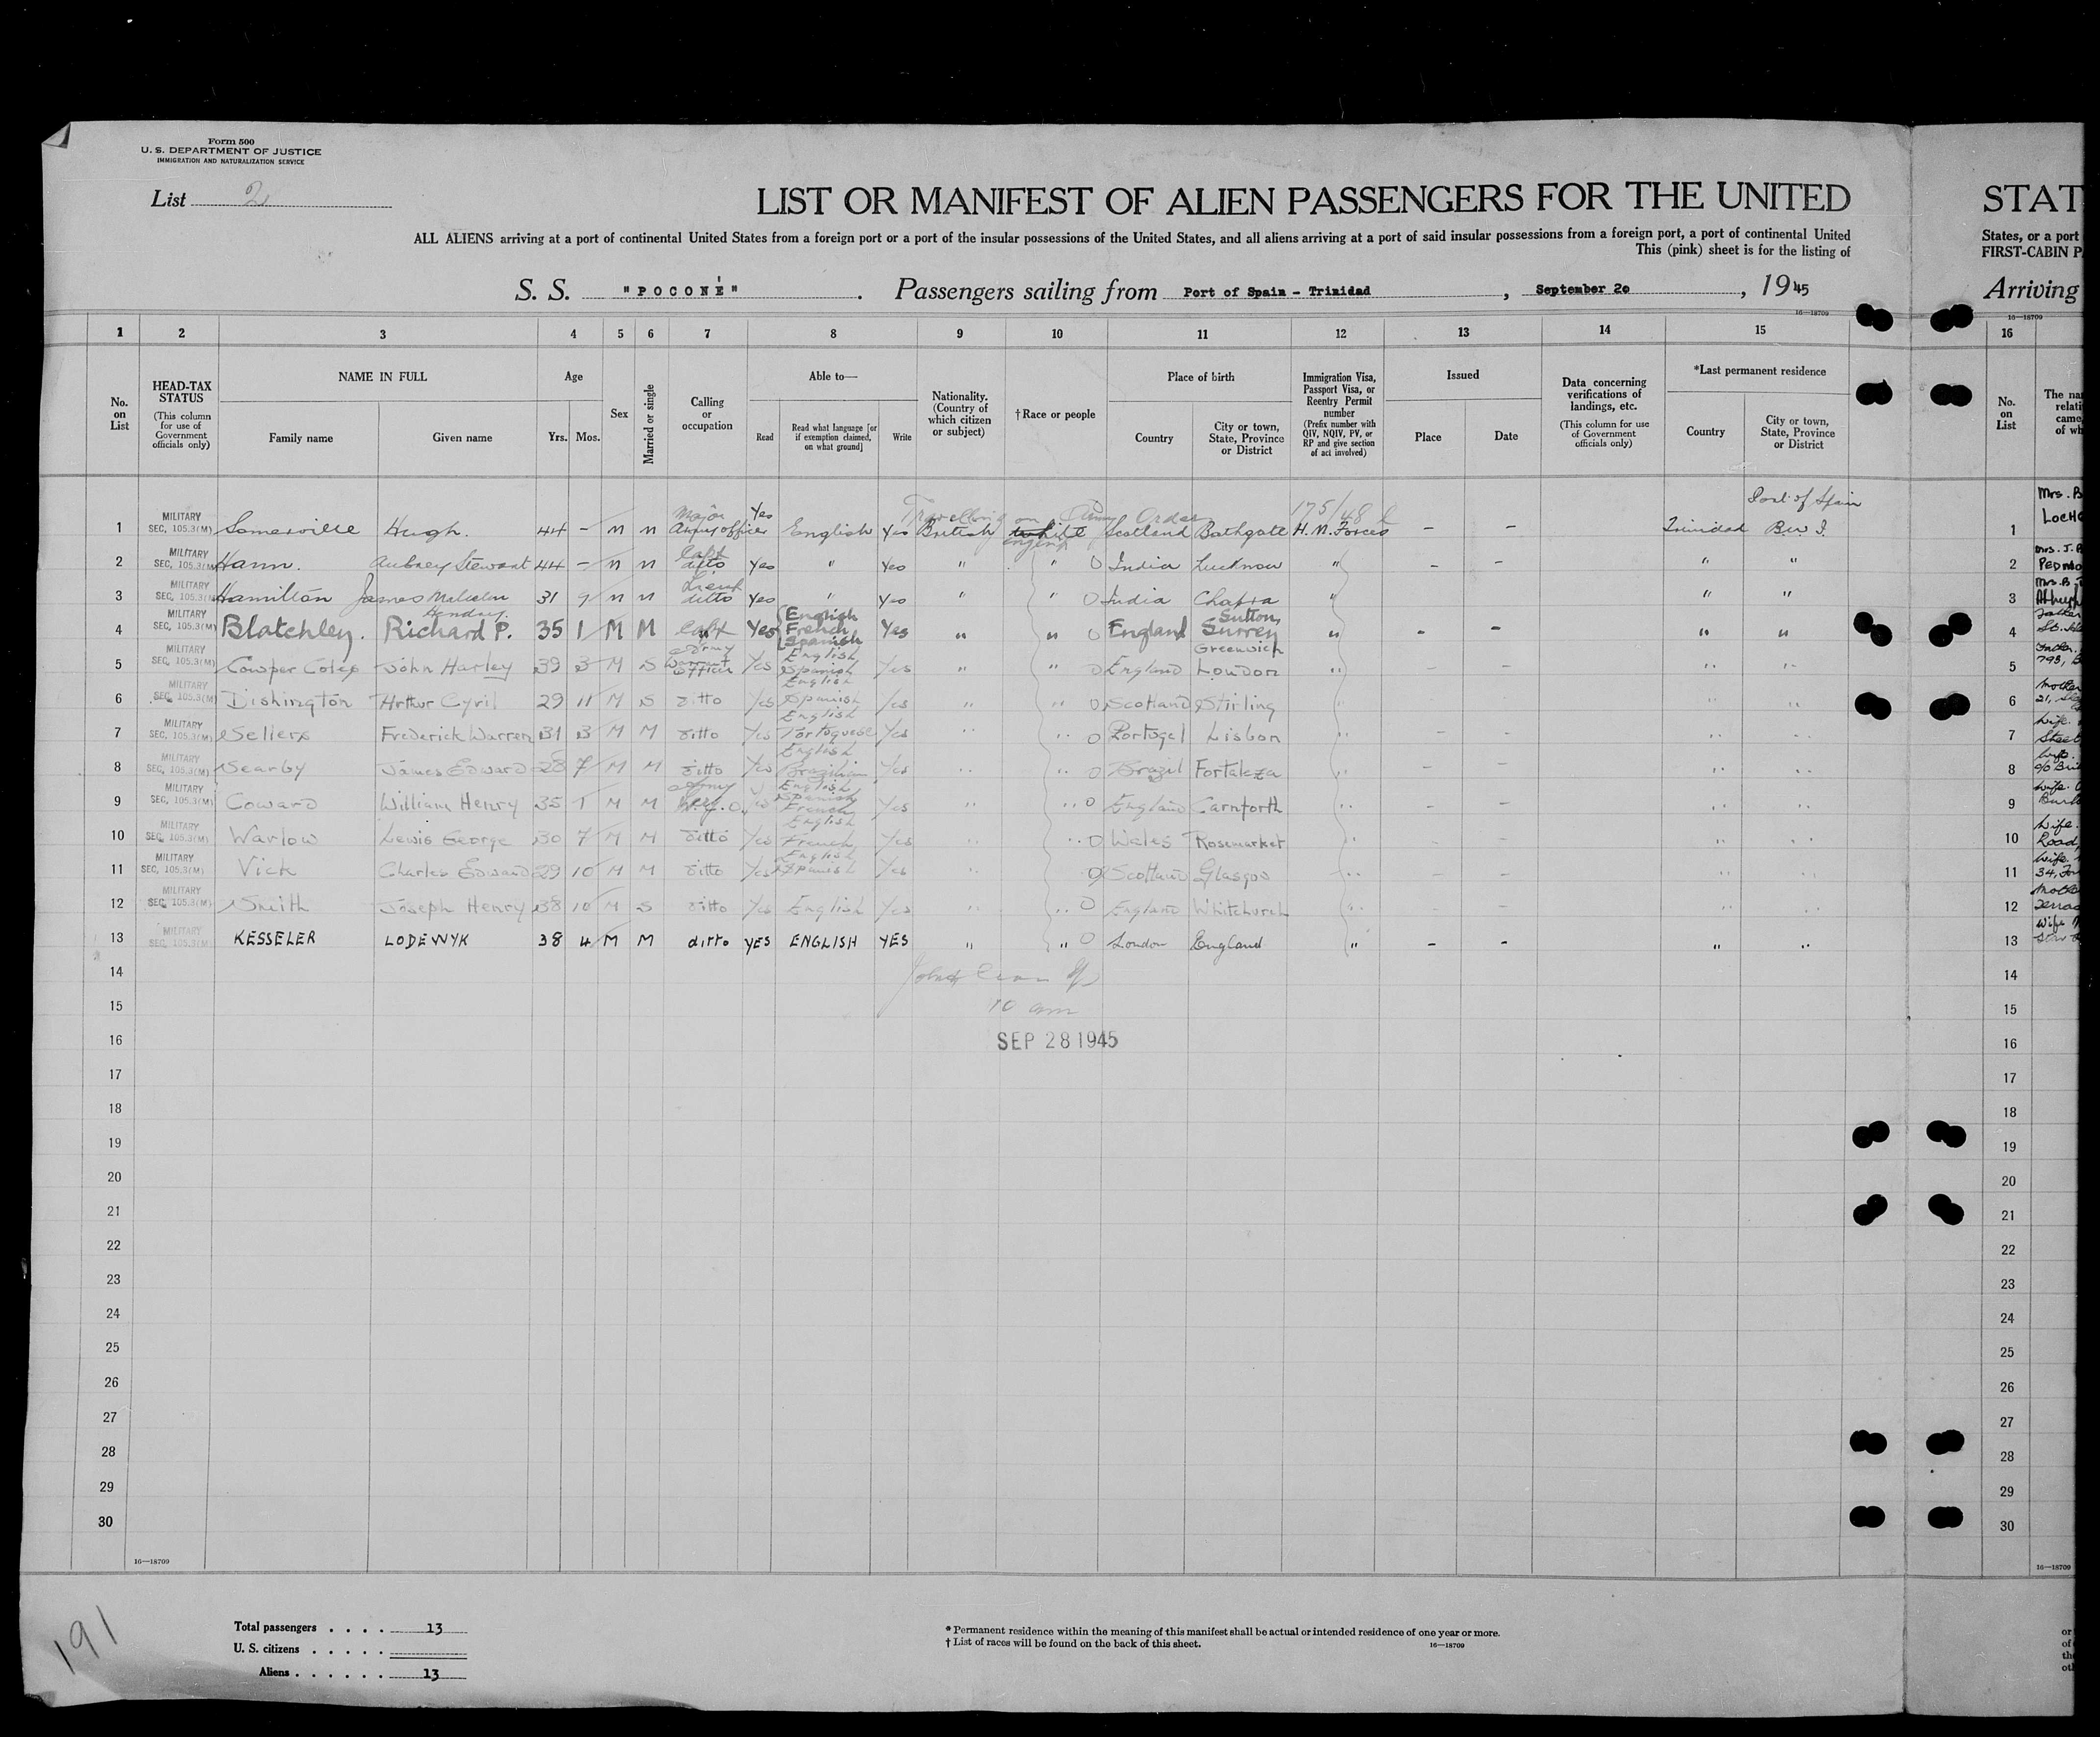 Form 500
U. S. DEPARTMENT OF JUSTICE
IMMIGRATION AND NATURALIZATION SERVICE
List 2
LIST OR MANIFEST OF ALIEN PASSENGERS FOR THE UNITED
STAT
ALL ALIENS arriving at a port of continental United States from a foreign port or a port of the insular possessions of the United States, and all aliens arriving at a port of said insular possessions from a foreign port, a port of continental United
States, or a port
This (pink) sheet is for the listing of
FIRST-CABIN P
S. S. "POCONÉ". Passengers sailing from Port of Spain - Trinidad, September 20, 1945
Arriving
16—18709
16—18709
1 2 3 4 5 6 7 8 9 10 11 12 13 14 15 16
No. on List
HEAD-TAX STATUS
(This column for use of Government officials only)
NAME IN FULL
Family name Given name
Age
Yrs. Mos.
Sex
Married or single
Calling or occupation
Able to—
Read
Read what language [or if exemption claimed, on what ground]
Write
Nationality. (Country of which citizen or subject)
† Race or people
Place of birth
Country
City or town, State, Province or District
Immigration Visa, Passport Visa, or Reentry Permit number
(Prefix number with QIV, NQIV, PV, or RP and give section of act involved)
Issued
Place Date
Data concerning verifications of landings, etc.
(This column for use of Government officials only)
*Last permanent residence
Country
City or town, State, Province or District
No. on List
The na
relati
came
of wh
Travelling on Army Orders 175/48
Port of Spain
1 MILITARY SEC. 105.3(M) Somerville Hugh. 44 - M M Major Army officer Yes English Yes British white Scotland Bathgate H.M. Forces - - Trinidad B.W.I. 1 Mrs. B
2 MILITARY SEC. 105.3(M) Hann. Aubrey Stewart 44 - M M Capt ditto Yes " Yes " " O India Lucknow " - - " " 2 Mrs. J.
3 MILITARY SEC. 105.3(M) Hamilton James Malcolm 31 7 M M Lieut ditto Yes " Yes " " O India Chapra " " " 3
4 MILITARY SEC. 105.3(M) Blatchley. Richard Hendry P. 35 1 M M Capt Yes English French Spanish Yes " " O England Sutton, Surrey " - - " " 4
5 MILITARY SEC. 105.3(M) Cowper Coles John Harley 39 3 M S Army Warrant Officer Yes English Spanish Yes " " O England Greenwich London " - - " " 5 793,
6 MILITARY SEC. 105.3(M) Dishington Arthur Cyril 29 11 M S ditto Yes English Spanish Yes " " O Scotland Stirling " " " 6 Mother 21,
7 MILITARY SEC. 105.3(M) Sellers Frederick Warren 31 3 M M ditto Yes English Portuguese Yes " " O Portugal Lisbon " - - " " 7 Wife.
8 MILITARY SEC. 105.3(M) Searby James Edward 28 7 M M ditto Yes English Brazilian Yes " " O Brazil Fortaleza " - - " " 8 Wife.
9 MILITARY SEC. 105.3(M) Coward William Henry 35 1 M M Army Yes English Spanish French Yes " O England Carnforth " - - " " 9 Wife.
10 MILITARY SEC. 105.3(M) Warlow Lewis George 30 7 M M ditto Yes English French Yes " " O Wales Rosemarket " - - " " 10 Wife. Road,
11 MILITARY SEC. 105.3(M) Vick Charles Edward 29 10 M M ditto Yes English Spanish Yes " O Scotland Glasgow " - - " " 11 Wife. 34,
12 MILITARY SEC. 105.3(M) Smith Joseph Henry 38 10 M S ditto Yes English Yes " " O England Whitchurch " - - " " 12 Mother
13 MILITARY SEC. 105.3(M) KESSELER LODEWYK 38 4 M M ditto YES ENGLISH YES " " O London England " - - " " 13 Wife
14 14
15 10 am 15
16 SEP 28 1945 16
17 17
18 18
19 19
20 20
21 21
22 22
23 23
24 24
25 25
26 26
27 27
28 28
29 29
30 30
16—18709
16—18709
191
Total passengers . . . . 13
U. S. citizens . . . . .
Aliens . . . . . . 13
* Permanent residence within the meaning of this manifest shall be actual or intended residence of one year or more.
† List of races will be found on the back of this sheet. 16—18709
or
of
the
oth